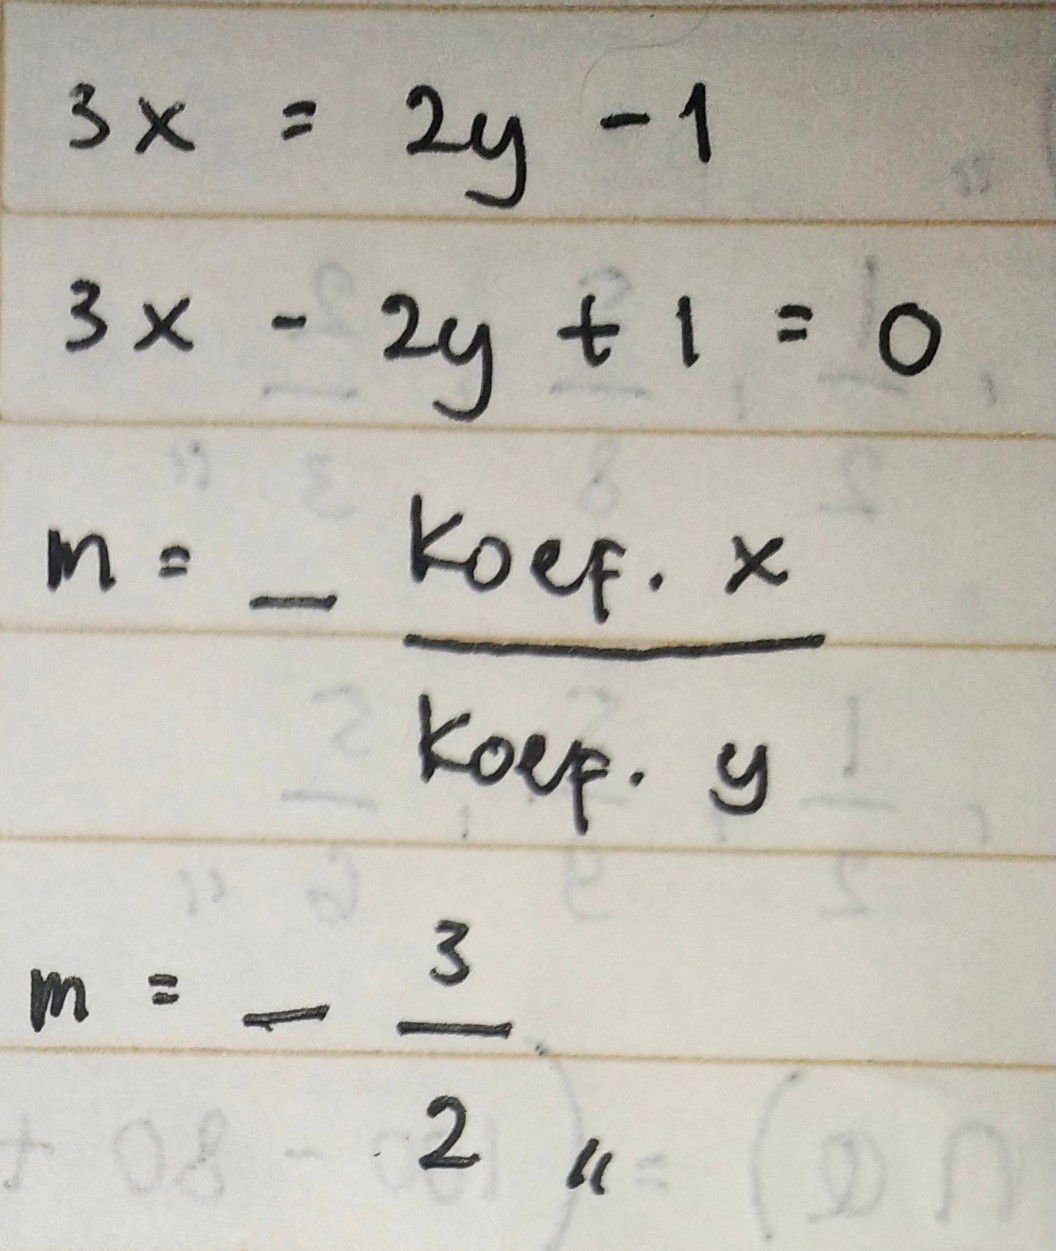 3x = 2y - 1
3x - 2y + 1 = 0
m = - Koef. x
Koef. y
m = - 3
2 "